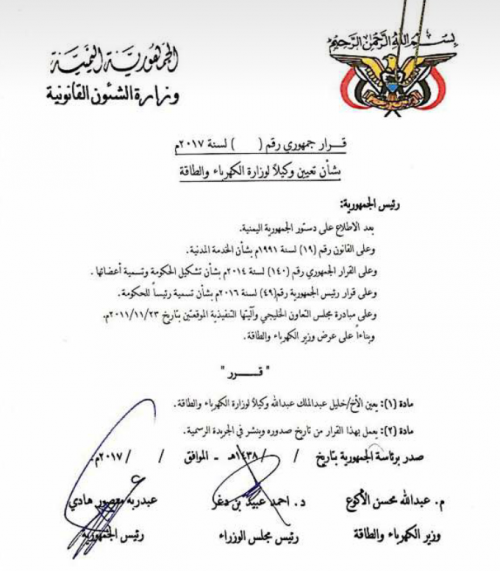 بسم الله الرحمن الرحيم
الجمهورية اليمنية
وزارة الشئون القانونية
قرار جمهوري رقم (    ) لسنة ٢٠١٧م
بشأن تعيين وكيلاً لوزارة الكهرباء والطاقة
رئيس الجمهورية:
بعد الاطلاع على دستور الجمهورية اليمنية.
وعلى القانون رقم (١٩) لسنة ١٩٩١م بشأن الخدمة المدنية.
وعلى القرار الجمهوري رقم (١٤٠) لسنة ٢٠١٤م بشأن تشكيل الحكومة وتسمية أعضائها .
وعلى قرار رئيس الجمهورية رقم(٤٩) لسنة ٢٠١٦م بشأن تسمية رئيساً للحكومة.
وعلى مبادرة مجلس التعاون الخليجي وآليتها التنفيذية الموقعتين بتاريخ ٢٠١١/١١/٢٣م.
وبناءاً على عرض وزير الكهرباء والطاقة.
" قـرر "
مادة (١): يعين الأخ/خليل عبدالملك عبدالله وكيلاً لوزارة الكهرباء والطاقة.
مادة (٢): يعمل بهذا القرار من تاريخ صدوره وينشر في الجريدة الرسمية.
صدر برئاسة الجمهورية بتاريخ / /١٤٣٨هـ - الموافق / /٢٠١٧م.
م. عبدالله محسن الأكوع    د. احمد عبيد بن دغر    عبدربه منصور هادي
وزير الكهرباء والطاقة    رئيس مجلس الوزراء    رئيس الجمهورية